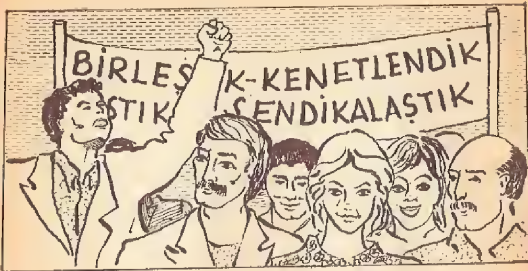 BİRLEŞ K-KENETLENDİK
ŞTIK SENDİKALAŞTIK